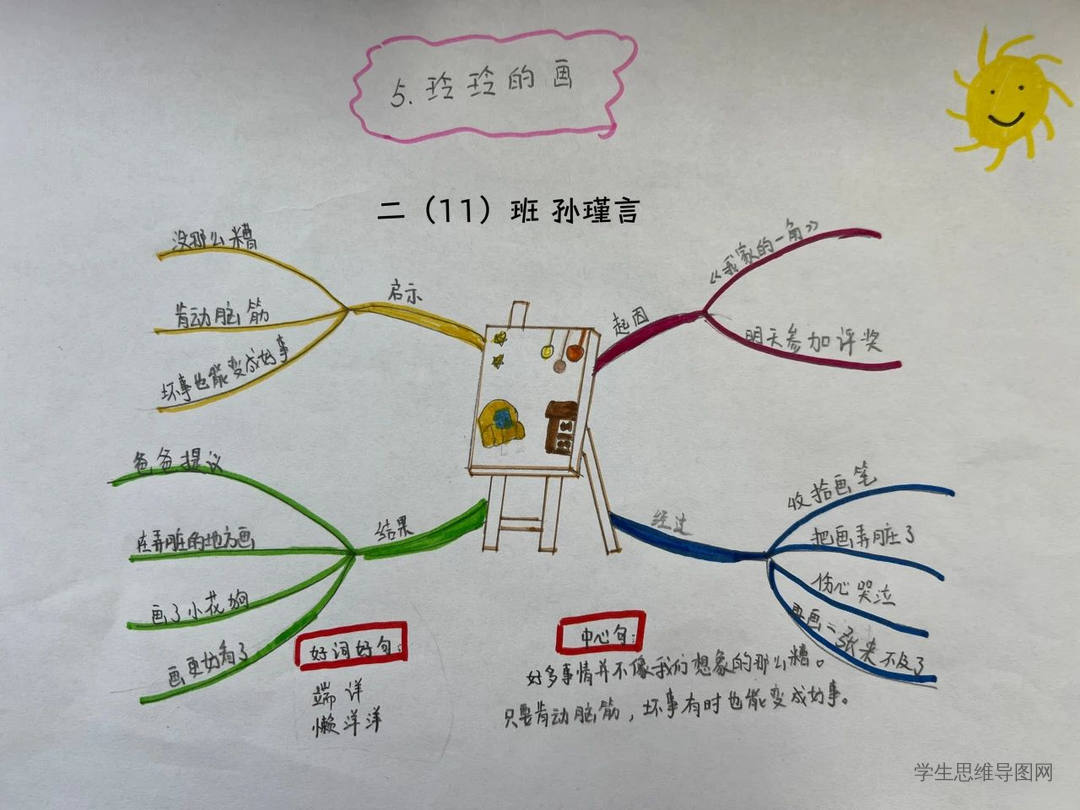 5.玲玲的画
二（11）班 孙瑾言
启示
没那么糟
肯动脑筋
坏事也能变成好事
起因
《我家的一角》
明天参加评奖
经过
收拾画笔
把画弄脏了
伤心哭泣
再画一张来不及了
结果
爸爸提议
在弄脏的地方画
画了小花狗
画更好看了
好词好句：
端详
懒洋洋
中心句：
好多事情并不像我们想象的那么糟。
只要肯动脑筋，坏事有时也能变成好事。
学生思维导图网